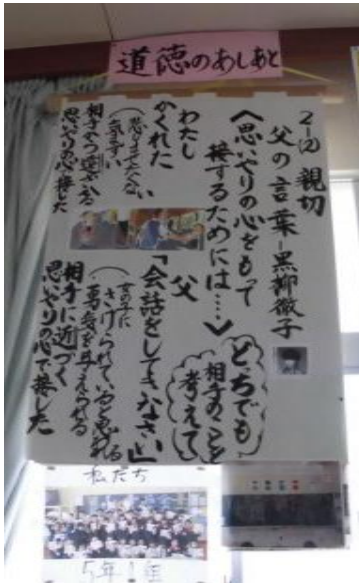 道徳のあしあと
2-(2) 親切
父の言葉-黒柳徹子
〈思いやりの心をもって
接するためには……〉
どっちでも
相手のことを
考えて
わたし
かくれた
相手から遠ざかる
思いやりの心で接した
父
「会話をしてきなさい」
女の子に
さけられていると思われる
勇気を与えられる
相手に近づく
思いやりの心で接した
私たち
5年1組